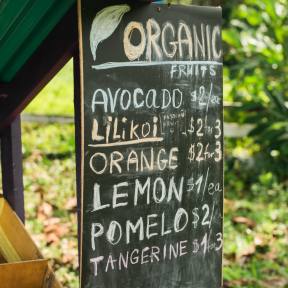 ORGANIC
FRUITS
AVOCADO $2/ea
LiLiKOi PASSION FRUIT $2for3
ORANGE $2for3
LEMON $1/ea
POMELO $2/
TANGERINE $1for3